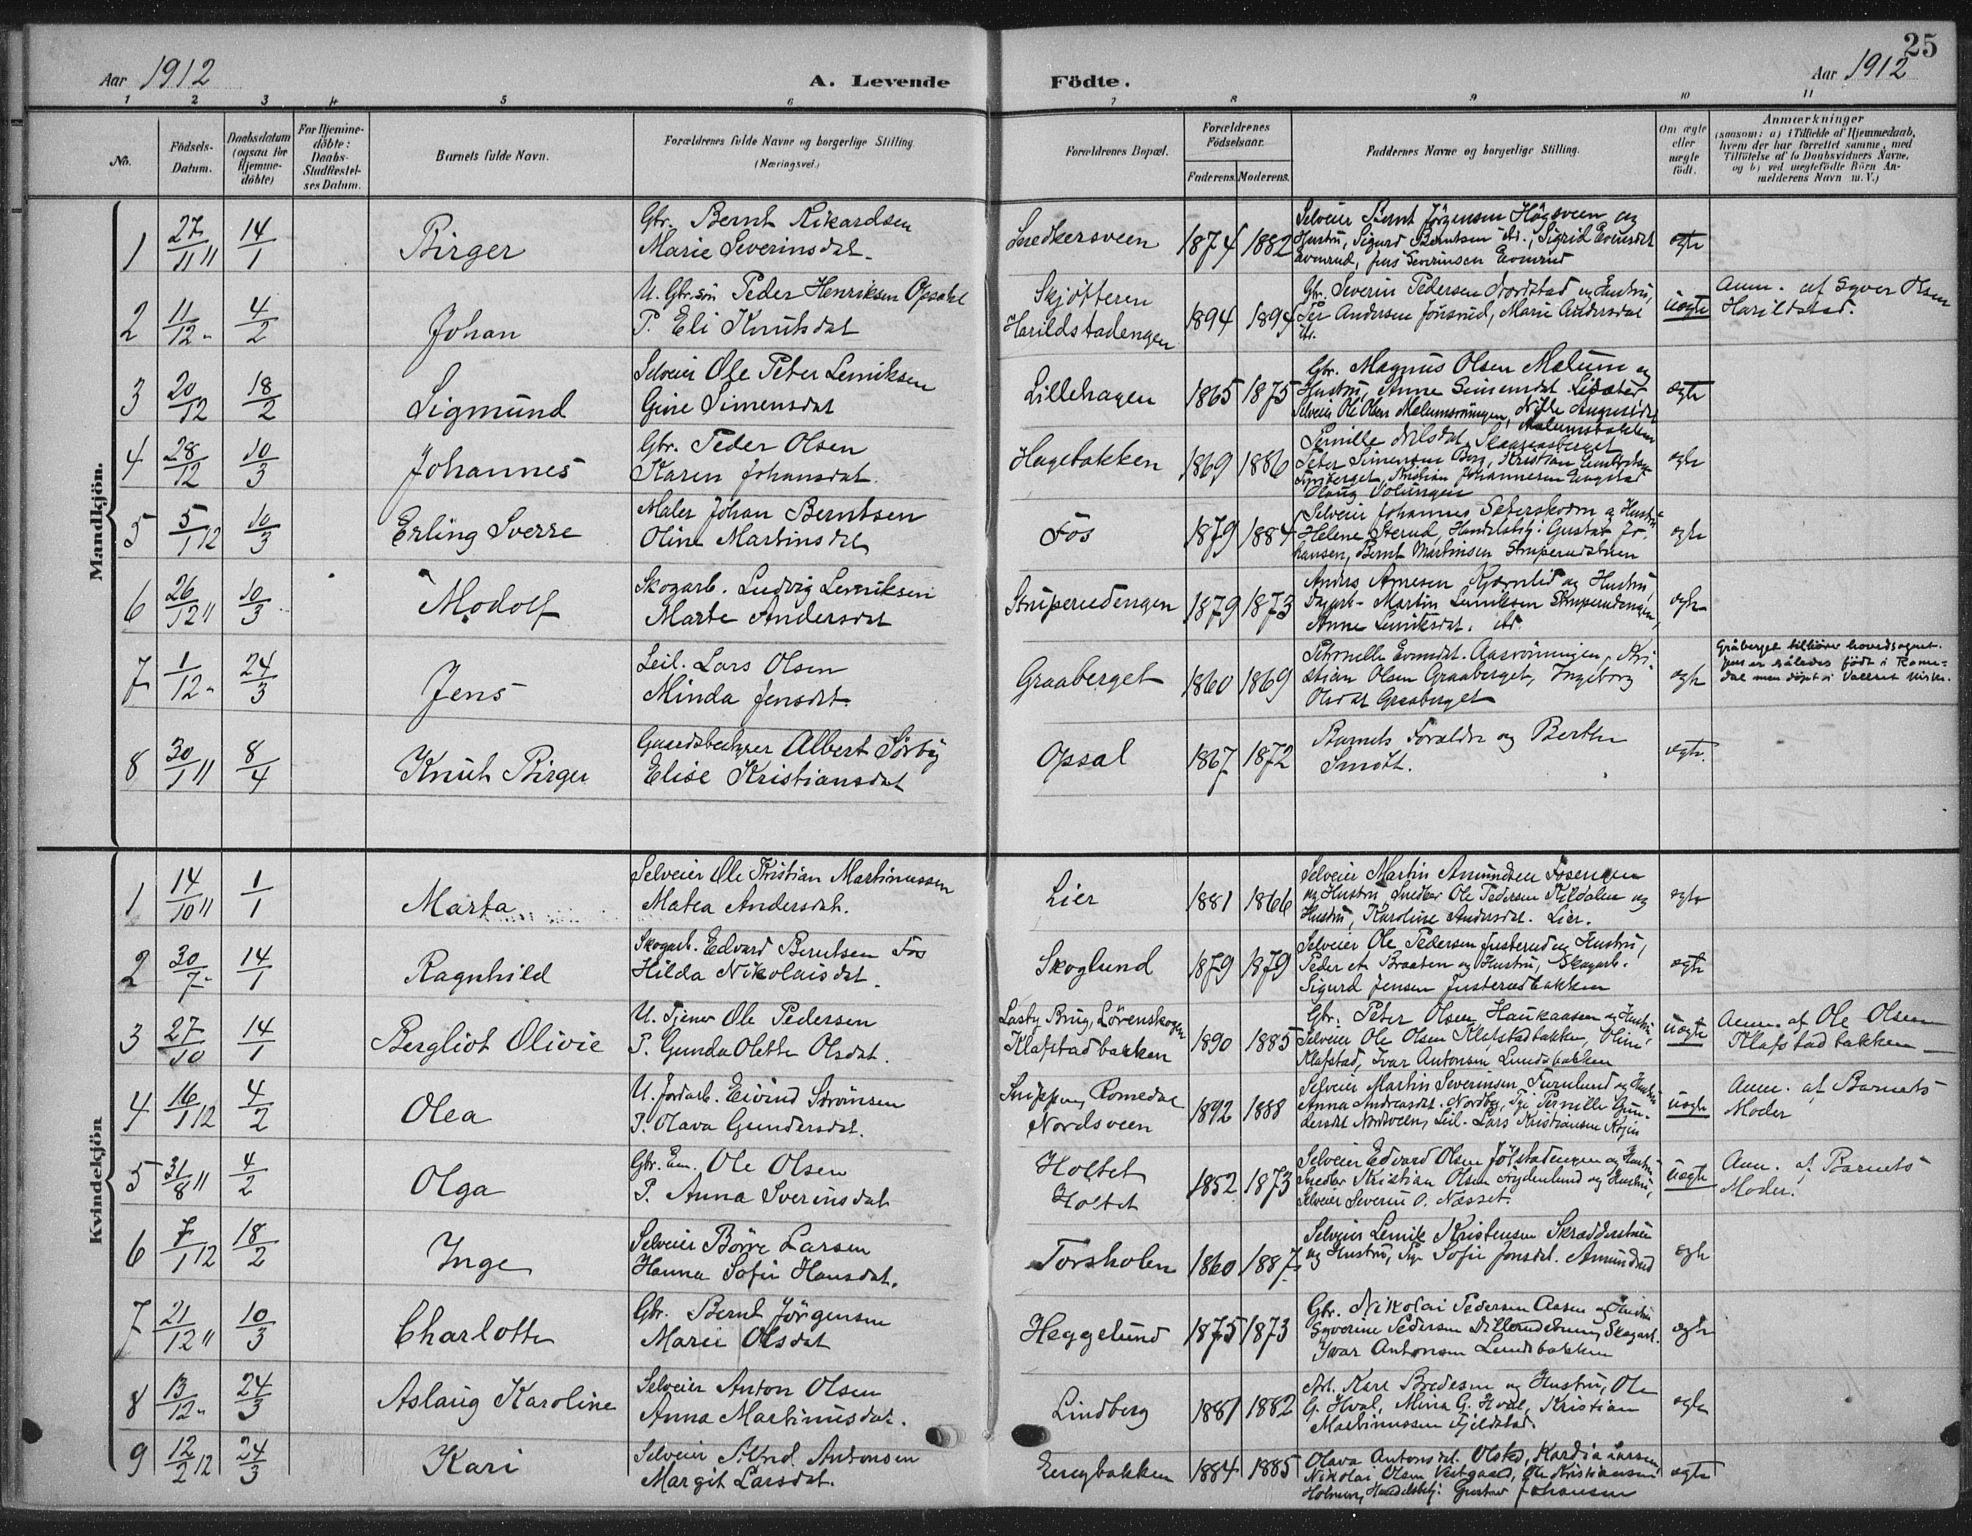 25
Aar 1912
A. Levende Födte.
Aar 1912
1 2 3 4 5 6 7 8 9 10 11
No.
Födsels-
Datum.
Daabsdatum
(ogsaa for
Hjemme-
döbte)
For Hjemme-
döbte:
Daabs-
Stadfestel-
ses Datum.
Barnets fulde Navn.
Forældrenes fulde Navne og borgerlige Stilling.
(Næringsvei.)
Forældrenes Bopæl.
Forældrenes
Födselsaar.
Faderens. Moderens.
Faddernes Navne og borgerlige Stilling.
Om ægte
eller
uægte
födt.
Anmærkninger
(saasom: a) i Tilfælde af Hjemmedaab,
hvem der har forrettet samme, med
Tilföielse af to Daabsvidners Navne,
og b) ved uægtefödte Börn An-
melderens Navn m. V.)
Mandkjön.
1 27/11 11 14/1 Birger
Gbr. Bernt Rikardsen
Marie Severinsdat.
Snedkersveen 1874 1882
Selveier Bernt Jörgensen Högsveen og
Hustru, Sigurd Berntsen
ægte
2 11/12 - 4/2 Johan
U. Gbr.sön Peder Henriksen Opsahl
P. Eli Knutsdat
Skjöfteren
Harildstadengen 1894 1894
Gbr. Severin Pedersen Nordstad og Hustru,
Per Andersen Jönsrud, Marie Andersdat
uægte
Anm. af Syver Olsen
Harildstad.
3 20/12 18/2 Sigmund
Selveier Ole Peter Lemiksen
Gine Simensdat
Lillehagen 1865 1875
Gbr. Magnus Olsen Malum og
Hustru, Anne Simensdat
ægte
4 28/12 10/3 Johannes
Gbr. Peder Olsen
Karen Johansdat.
Hagebakken 1869 1886
Pernille Nilsdat. Skaaraasberget
Peter Simensen Berg, Kristian
Haug Volungen
ægte
5 5/1 12 10/3 Erling Sverre
Maler Johan Berntsen
Oline Martinsdat
Fos 1879 1884
Selveier Johannes Seterskoden og Hustru
Helene Sterud, Handelsbtj. Gustav Jo-
hansen, Bernt Martinsen Struperudstuen
ægte
6 26/12 11 10/3 Modolf
Skogarb. Ludvig Lemiksen
Marte Andersdat
Struperudengen 1879 1873
Anders Arnesen Kjærnlid og Hustru,
Dagarb. Martin Lemiksen Struperudengen,
Anne Lemiksdat. ibd.
ægte
7 1/12 - 24/3 Jens
Leil. Lars Olsen
Minda Jensdat.
Graaberget 1860 1869
Petronelle Evendst. Aasrönningen, Kri-
stian Olsen Graaberget, Ingeborg
Olsdat Graaberget
ægte
Gråberget tilhörer hovedsognet.
Jens er således födt i Rome-
dal men döpt i Vallset kirke.
8 30/1 11 8/4 Knut Birger
Gaardsbestyrer Albert Sörby
Elise Kristiansdat
Opsal 1867 1872
Barnets Foraldre og Berthe
Smöt.
ægte.
Kvindekjön
1 14/10 11 1/1 Marta
Selveier Ole Kristian Martinussen
Matea Andersdat.
Lier 1881 1866
Selveier Martin Amundsen Fosengen
og Hustru, Snedker Ole Pedersen Kildalen og
Hustru, Karoline Andersdat. Lier.
ægte
2 30/7 - 14/1 Ragnhild
Skogarb. Edvard Berntsen Fos
Hilda Nikolaisdat.
Skoglund 1879 1879
Selveier Ole Pedersen Justerud og Hustru,
Peder et. Braaten og Hustru, Skogarb.
Sigurd Jensen Justerudbakken
ægte
3 27/10 14/1 Bergliot Olivie
U. Tjener Ole Pedersen
P. Gunda Olette Olsdat.
Losby Brug, Lörenskogen
Klafstadbakken 1890 1885
Gbr. Peter Olsen Haukaasen og Hustru,
Selveier Ole Olsen Klafstadbakken, Oline
Klafstad, Ivar Antonsen Lundsbakken
uægte
Anm. af Ole Olsen
Klafstadbakken
4 16/1 12 4/2 Olea
U. Jordarb. Eivind Sörensen
P. Olava Gundersdat.
Romedal
Nordsveen 1892 1888
Selveier Martin Severinsen Furulund og Hustru
Anna Andreasdat. Nordby, Pernille Gun-
dersdat Nordsveen, Leil. Lars Kristiansen
uægte
Anm. af Barnets
Moder
5 31/8 11 4/2 Olga
Gbr. Em. Ole Olsen
P. Anna Sverinsdat
Holtet
Holtet 1852 1873
Selveier Edvard Olsen Jölstadengen og Hustru
Snedker Kristian Olsen Nydenlund og Hustru,
Selveier Severin O. Næsset.
uægte
Anm. af Barnets
Moder.
6 7/1 12 18/2 Inge
Selveier Börre Larsen
Hanna Sofie Hansdat.
Torsholen 1860 1887
Selveier Lemik Kristensen Skrædderstuen
og Hustru, Sofie Jonsdat. Amundrud
ægte
7 21/12 11 10/3 Charlotte
Gbr. Bernt Jörgensen
Marie Olsdat
Heggelund 1875 1873
Gbr. Nikolai Pedersen Aasen og Hustru
Syverine Pedersen Dillerudeteug, Skogarb.
Ivar Antonsen Lundsbakken
ægte
8 13/12 - 24/3 Aslaug Karoline
Selveier Anton Olsen
Anna Martinusdat.
Lindberg 1881 1882
Arb. Kare Bredesen og Hustru, Ole
G. Hval, Mina G. Hval, Kristian
Martinussen Fjeldstad.
ægte
9 12/2 12 24/3 Kari
Selveier Alfred Antonsen
Margit Larsdat.
Enerybakken 1884 1885
Olava Antonsdat. Olstad, Kardia Larsen
Nikolai Olsen Vestgaard, Ole Kristiansen
Holmen, Handelsbtj. Gustav Johansen
ægte